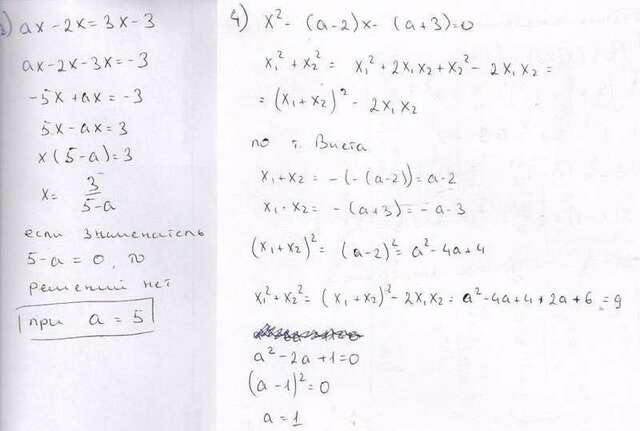 ) ax - 2x = 3x - 3
ax - 2x - 3x = -3
-5x + ax = -3
5x - ax = 3
x(5-a) = 3
x = 3/(5-a)
если знаменатель
5-a = 0, то
решений нет
при a = 5
4) x² - (a-2)x - (a+3) = 0
x₁² + x₂² = x₁² + 2x₁x₂ + x₂² - 2x₁x₂ =
= (x₁ + x₂)² - 2x₁x₂
по т. Виета
x₁ + x₂ = -(-(a-2)) = a-2
x₁ · x₂ = -(a+3) = -a-3
(x₁ + x₂)² = (a-2)² = a² - 4a + 4
x₁² + x₂² = (x₁ + x₂)² - 2x₁x₂ = a² - 4a + 4 + 2a + 6 = 9
a² - 2a + 1 = 0
(a-1)² = 0
a = 1